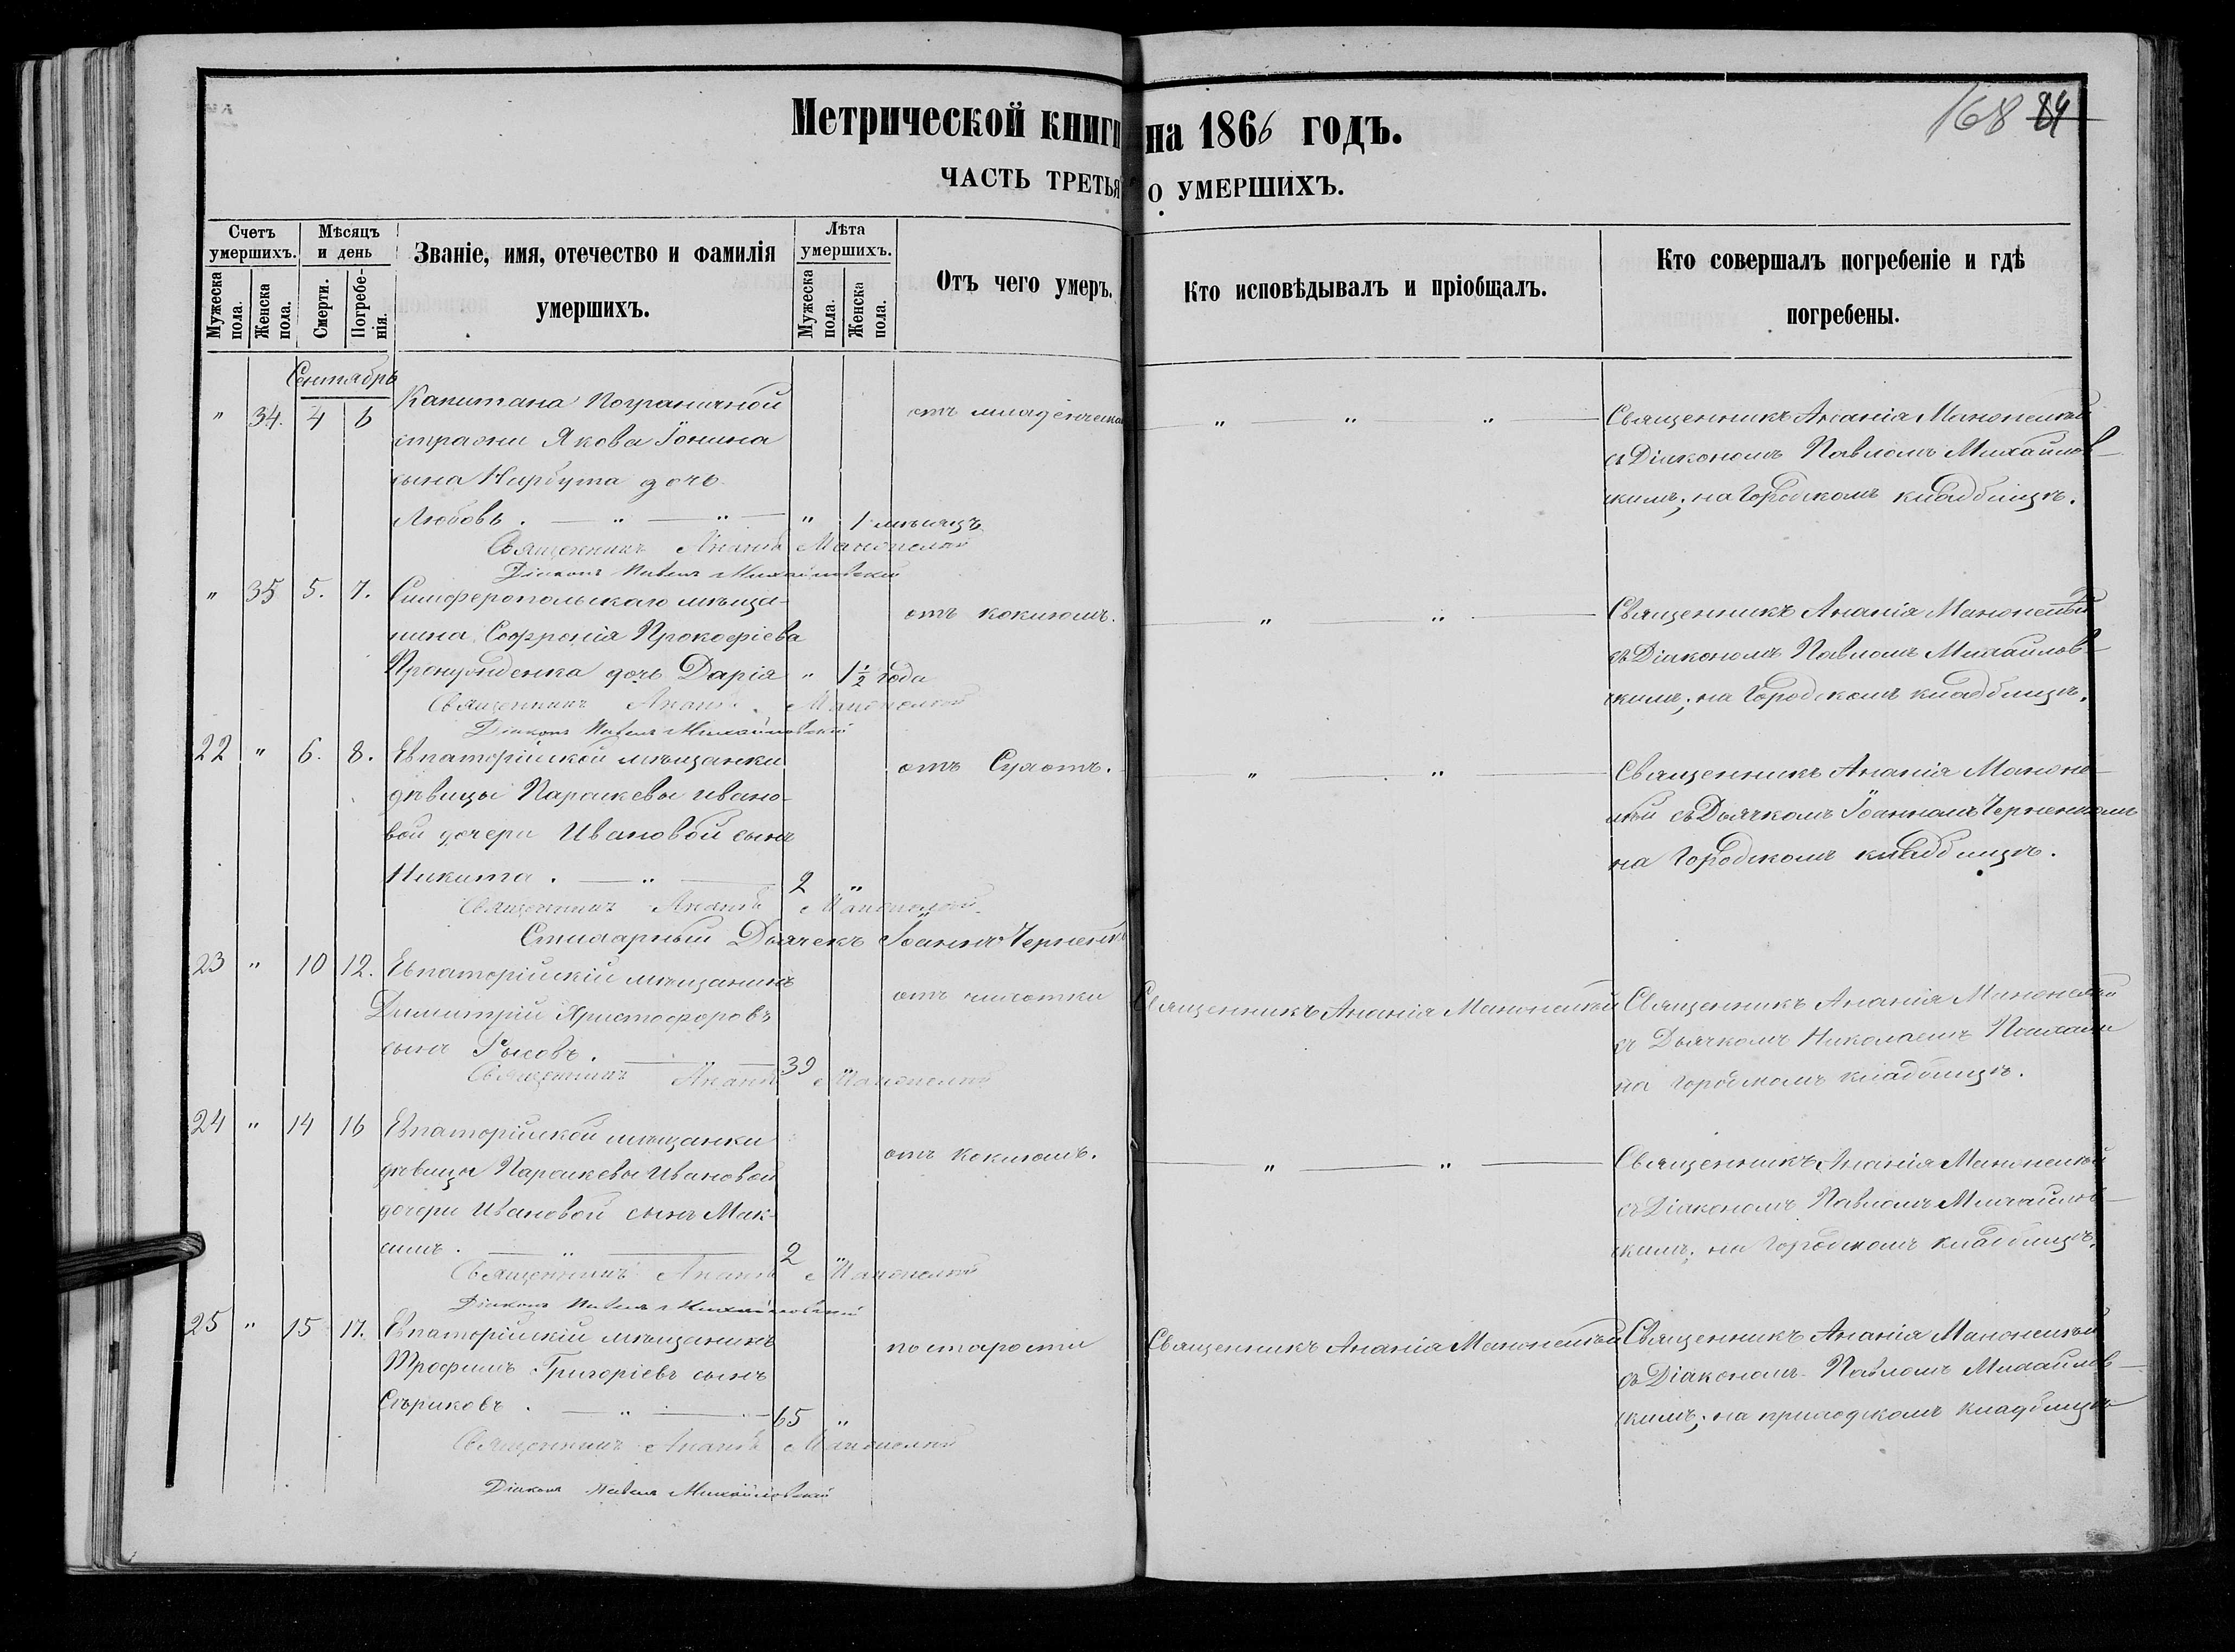 168 84
Метрической книги на 1866 годъ.
ЧАСТЬ ТРЕТЬЯ О УМЕРШИХЪ.
Счетъ умершихъ.
Мужеска пола.
Женска пола.
Мѣсяцъ и день
Смерти.
Погребе-
нія.
Званіе, имя, отечество и фамилія
умершихъ.
Лѣта умершихъ.
Мужеска пола.
Женска пола.
Отъ чего умеръ.
Кто исповѣдывалъ и пріобщалъ.
Кто совершалъ погребеніе и гдѣ
погребены.
Сентябрь
" 34. 4 6 Капитана Пограничной
стражи Якова Іонина
сына Нарбута дочь
Любовь. — " — " — " 1 мѣсяцъ
отъ младенческой
" " "
Священникъ Ананія
съ Діакономъ Павломъ Михайлов-
скимъ; на Городскомъ кладбищѣ.
Священникъ Ананія
Діаконъ Павелъ Михайловскій
" 35 5. 7. Симферопольскаго мѣща-
нина Софронія Прокофіева
дочь Дарія " 1 1/2 года
отъ коклюшъ.
" "
Священникъ Ананія
съ Діакономъ Павломъ Михайлов-
скимъ; на Городскомъ кладбищѣ.
Священникъ Ананія
Діаконъ Павелъ Михайловскій
22 " 6. 8. Евпаторійской мѣщанки
дѣвицы Параскевы Ивано-
вой дочери Ивановой сынъ
Никита. — " — 2 "
отъ Сухотъ.
" "
Священникъ Ананія
съ Дьячкомъ Іоанномъ
на Городскомъ кладбищѣ.
Священникъ Ананія
Стихарный Дьячекъ Іоаннъ
23 " 10 12. Евпаторійскій мѣщанинъ
Димитрій Христофоровъ
сынъ — " — 39 "
отъ чахотки
Священникъ Ананія
Священникъ Ананія
съ Дьячкомъ Николаемъ
на городскомъ кладбищѣ.
Священникъ Ананія
24 " 14 16 Евпаторійской мѣщанки
дѣвицы Параскевы Ивановой
дочери Ивановой сынъ Мак-
симъ. — " — 2 "
отъ коклюшъ.
" "
Священникъ Ананія
съ Діакономъ Павломъ Михайлов-
скимъ; на Городскомъ кладбищѣ.
Священникъ Ананія
Діаконъ Павелъ Михайловскій
25 " 15 17. Евпаторійскій мѣщанинъ
Трофимъ Григоріевъ сынъ
Сѣриковъ. — " — 65 "
по старости
Священникъ Ананія
Священникъ Ананія
съ Діакономъ Павломъ Михайлов-
скимъ; на приходскомъ кладбищѣ
Священникъ Ананія
Діаконъ Павелъ Михайловскій